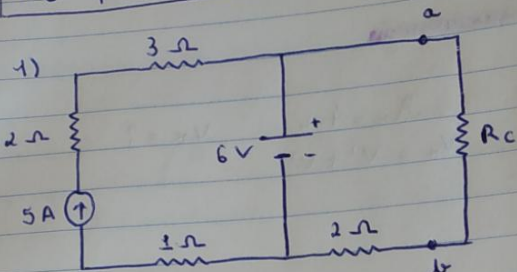 a
3 Ω
1)
2 Ω
+
6 V
-
Rc
5A
1 Ω
2 Ω
b